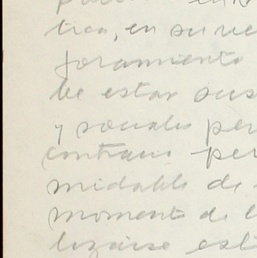 tica, en su ve
foramiento
be estar sus
y sociales per
contrario per
midable de
momento de l
lizarse est